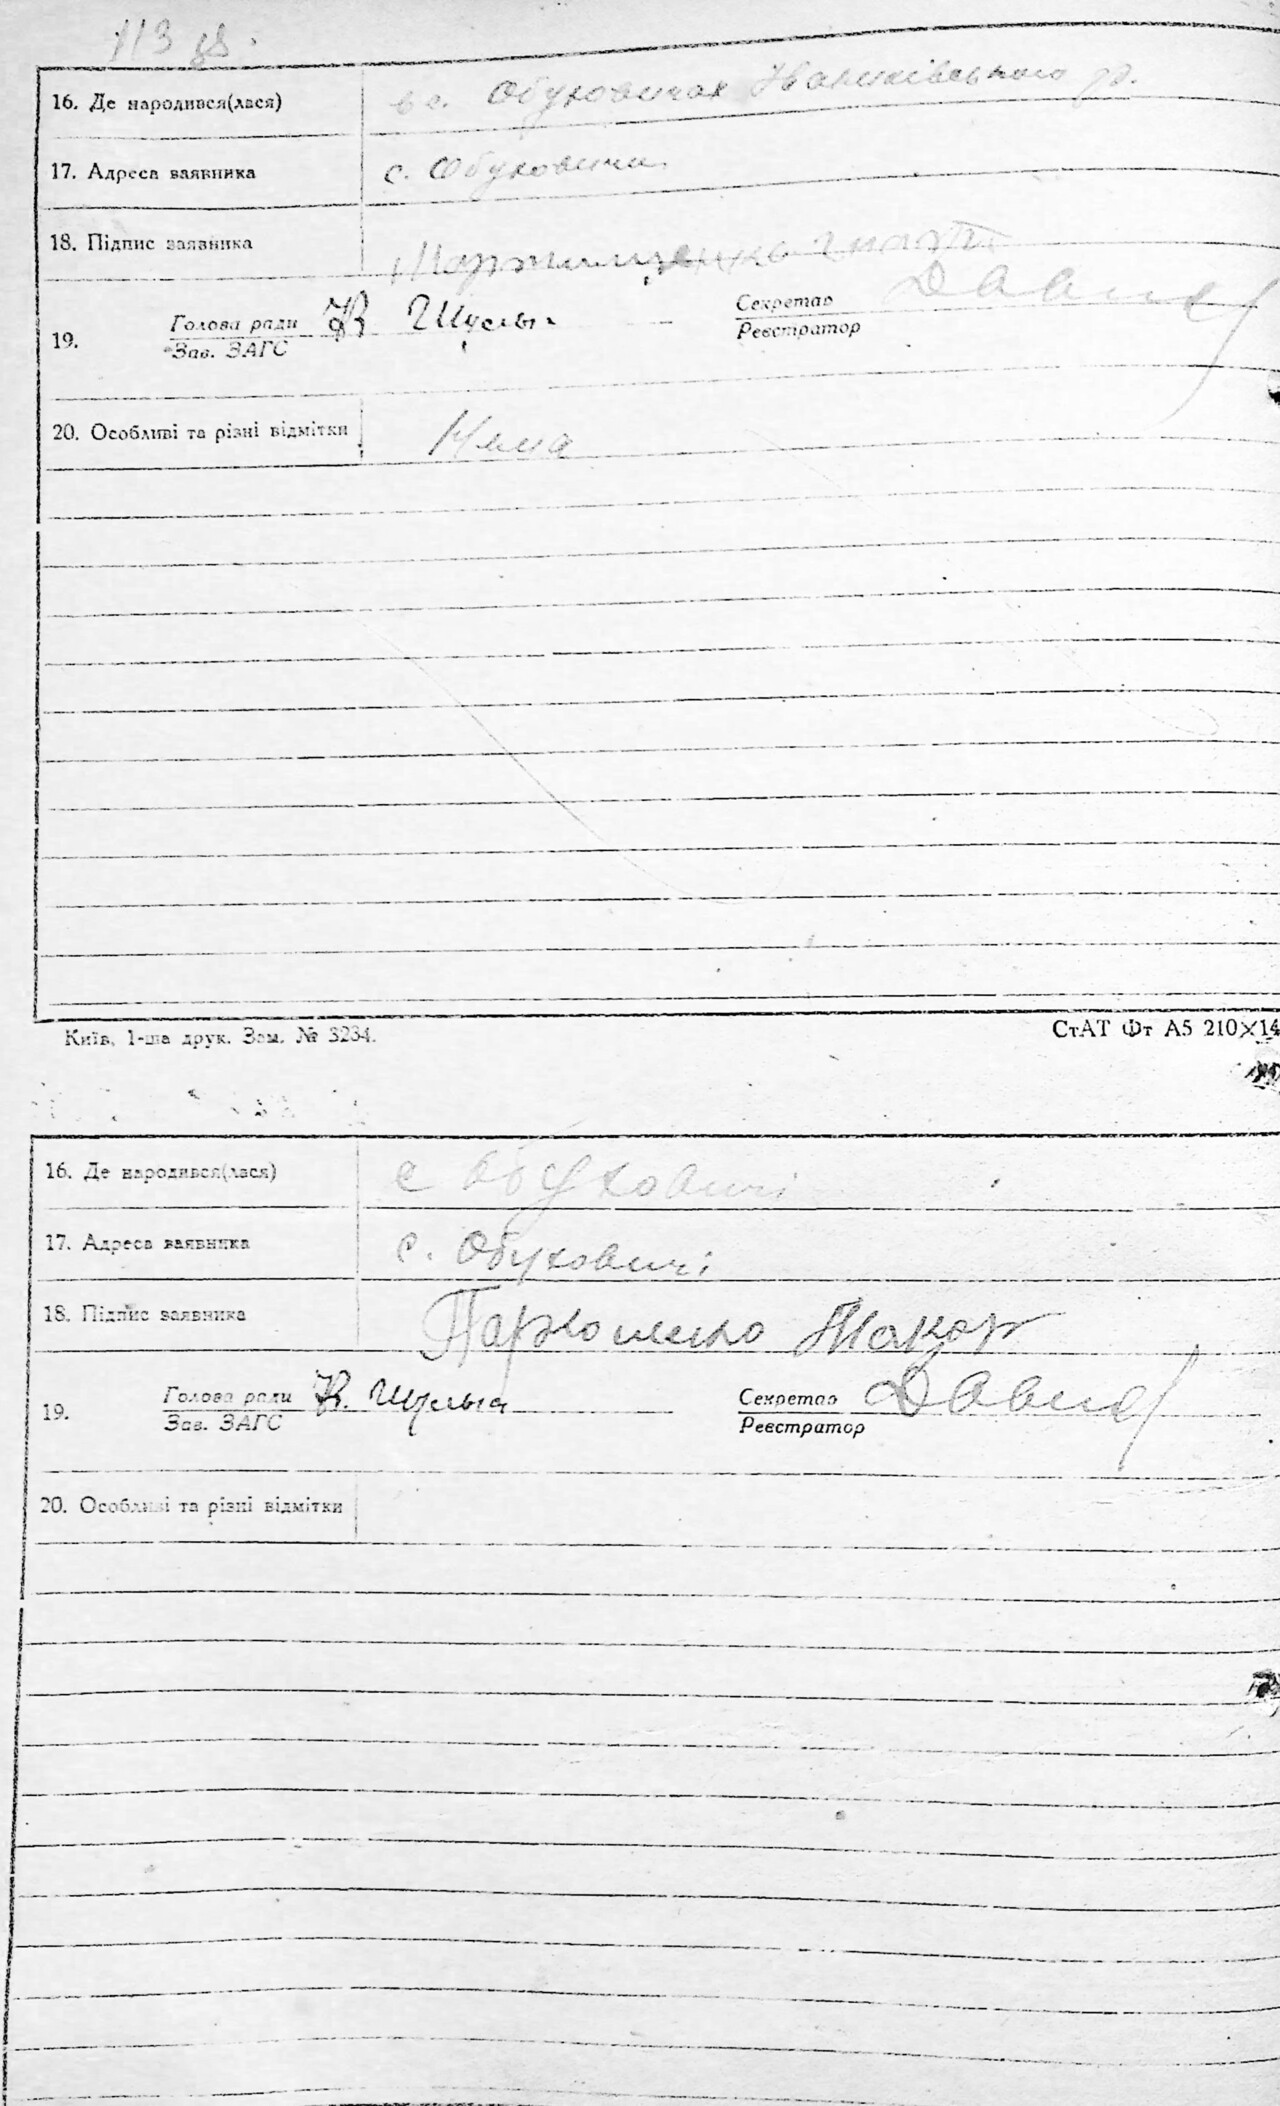 113 зв.
16. Де народився(лася) в с. Обуховичах Іванківського р.
17. Адреса заявника с. Обуховичи
18. Підпис заявника
19. Голова ради Шульга Секретар
Зав. ЗАГС Реєстратор
20. Особливі та різні відмітки Нема
Київ, 1-ша друк. Зам. № 3234.
СтАТ Фт А5 210×14
16. Де народився(лася) с Обуховичі
17. Адреса заявника с. Обуховичі
18. Підпис заявника Пархоменко Макар
19. Голова ради Шульга Секретар
Зав. ЗАГС Реєстратор
20. Особливі та різні відмітки